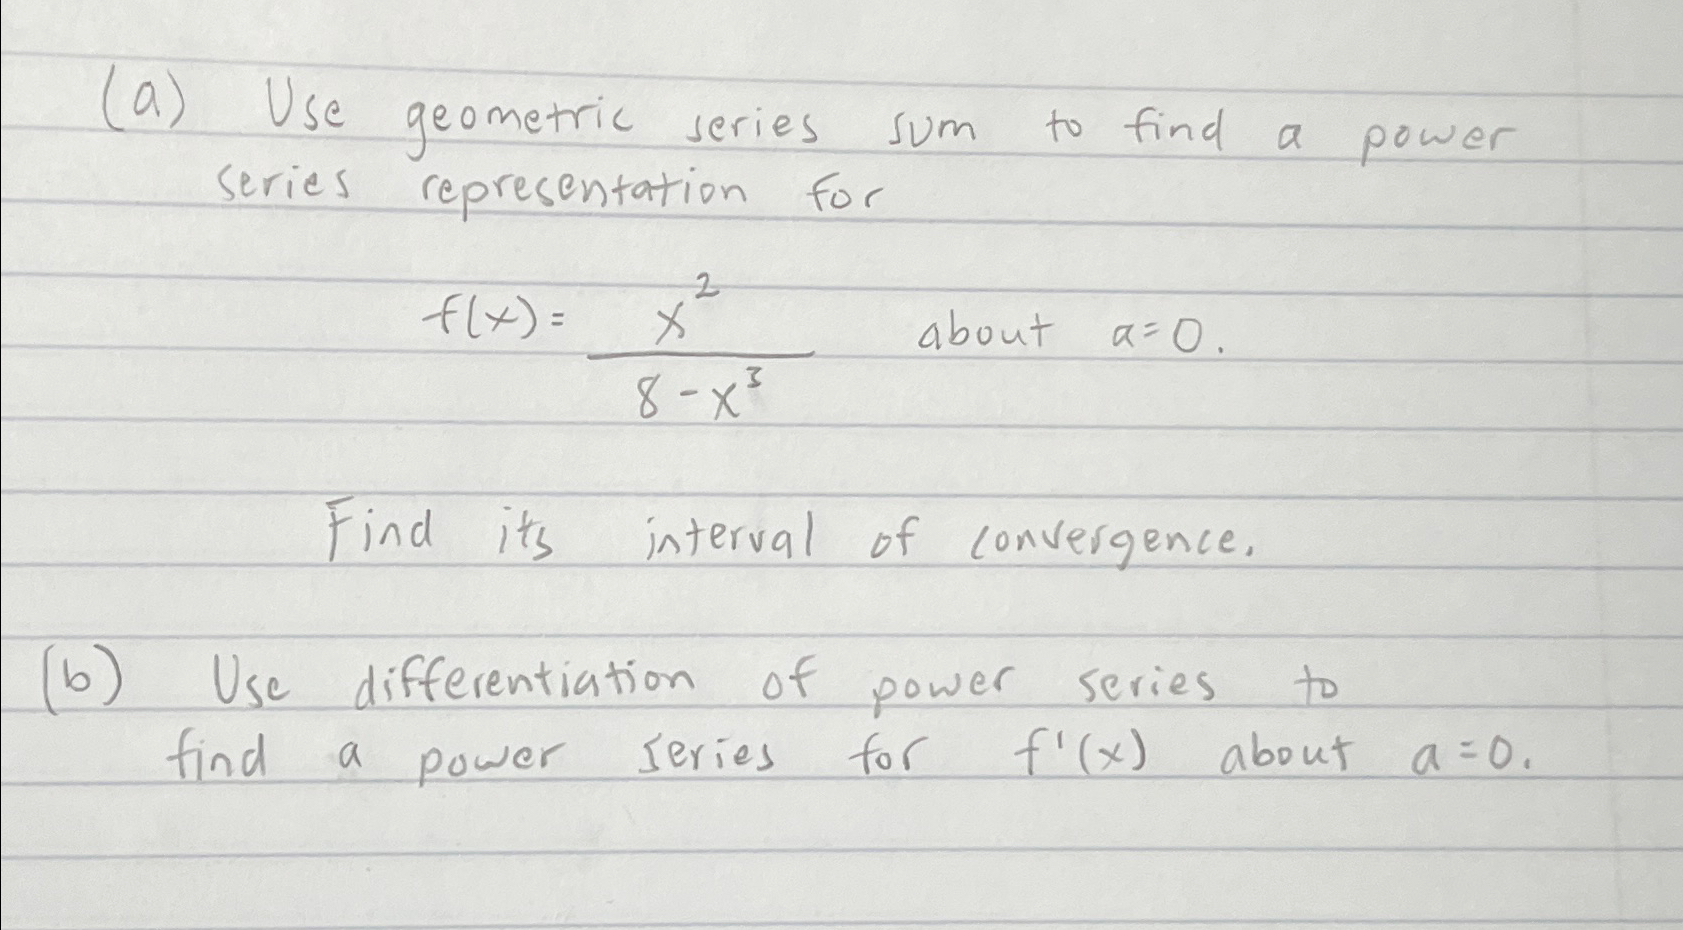 (a) Use geometric series sum to find a power
series representation for
f(x) = x^2 / (8 - x^3) about a=0.
Find its interval of convergence.
(b) Use differentiation of power series to
find a power series for f'(x) about a=0.